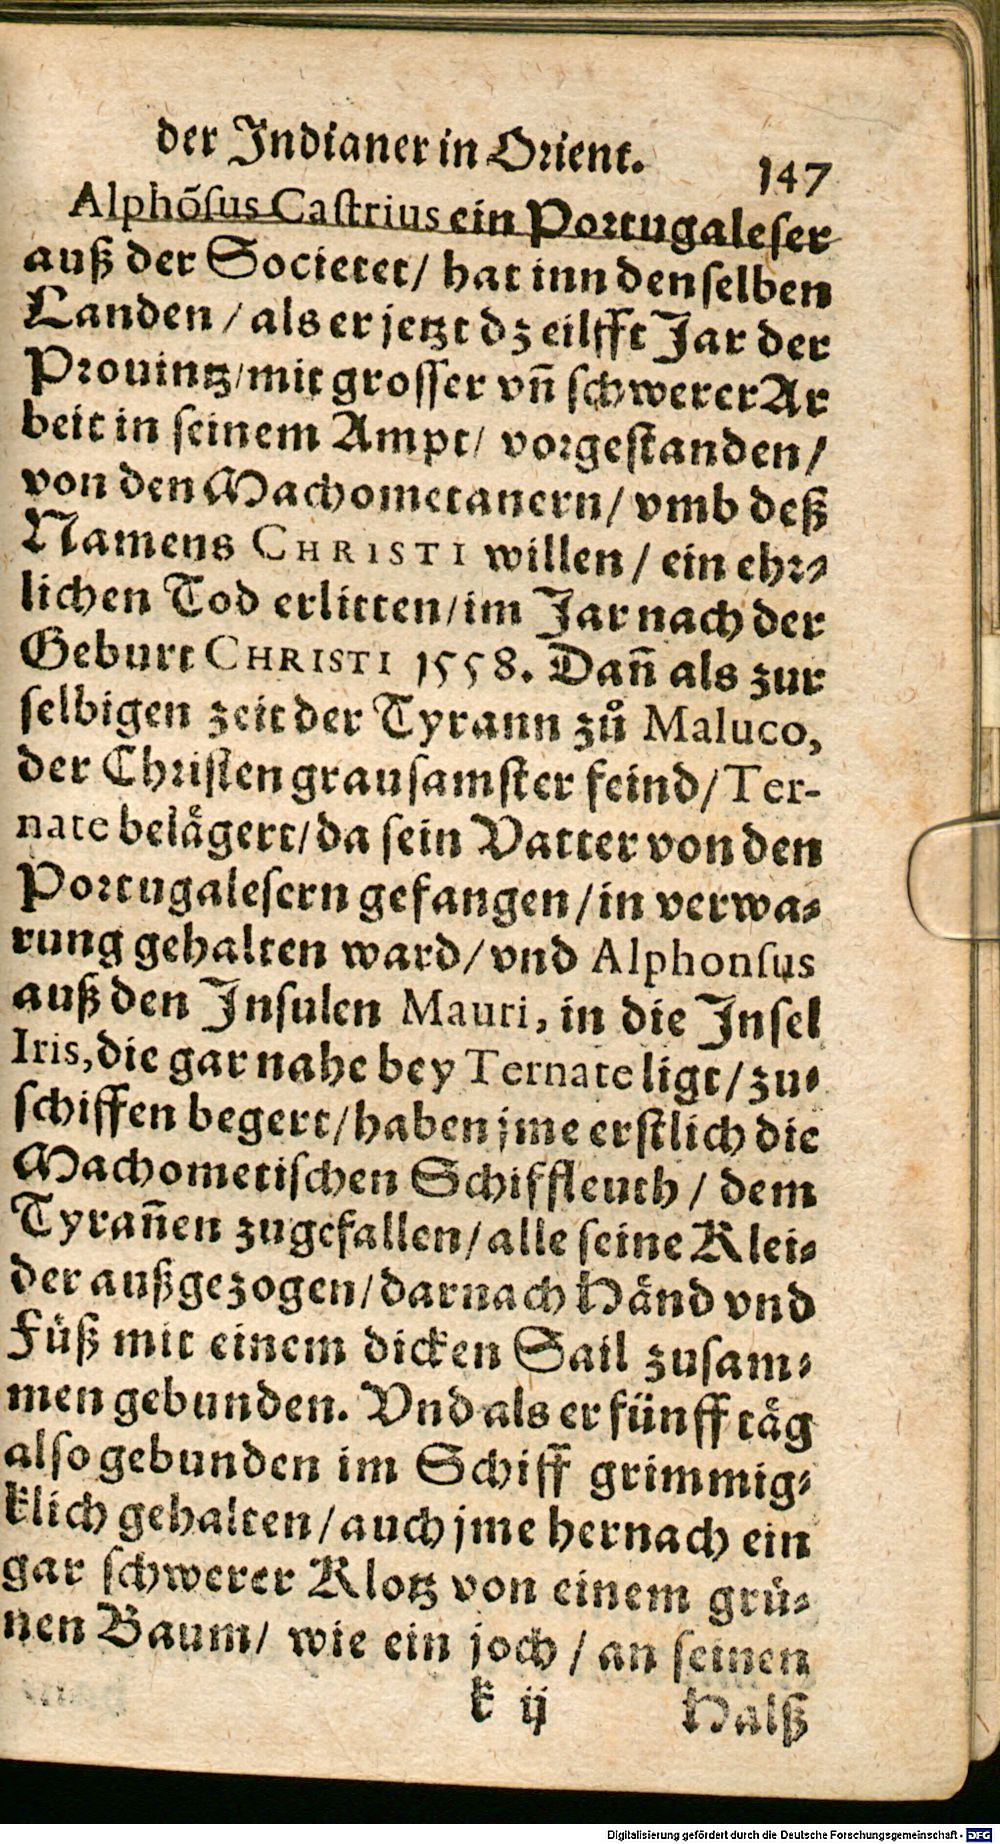 der Indianer in Orient. 147
Alphõſus Caſtrius ein Portugaleſer
auß der Societet/ hat inn denſelben
Landen / als er jetzt dz eilfft Jar der
Prouintz/mit groſſer vñ ſchwerer Ar
beit in ſeinem Ampt/ vorgeſtanden/
von den Machometanern/ vmb deß
Namens CHRISTI willen / ein ehr⸗
lichen Tod erlitten/im Jar nach der
Geburt CHRISTI 1558. Dañ als zur
ſelbigen zeit der Tyrann zů Maluco,
der Chriſten grauſamſter feind/Ter-
nate belaͤgert/da ſein Vatter von den
Portugaleſern gefangen /in verwa⸗
rung gehalten ward/vnd Alphonſus
auß den Inſulen Mauri, in die Inſel
Iris,die gar nahe bey Ternate ligt/zu⸗
ſchiffen begert/haben jme erſtlich die
Machometiſchen Schiffleuth / dem
Tyrañen zugefallen/alle ſeine Klei⸗
der außgezogen/darnach Haͤnd vnd
Fuͤß mit einem dicken Sail zuſam⸗
men gebunden. Vnd als er fünff taͤg
alſo gebunden im Schiff grimmig⸗
klich gehalten/auch jme hernach ein
gar ſchwerer Klotz von einem gruͤ⸗
nen Baum/ wie ein joch / an ſeinen
k ij Halß
Digitalisierung gefördert durch die Deutsche Forschungsgemeinschaft - DFG